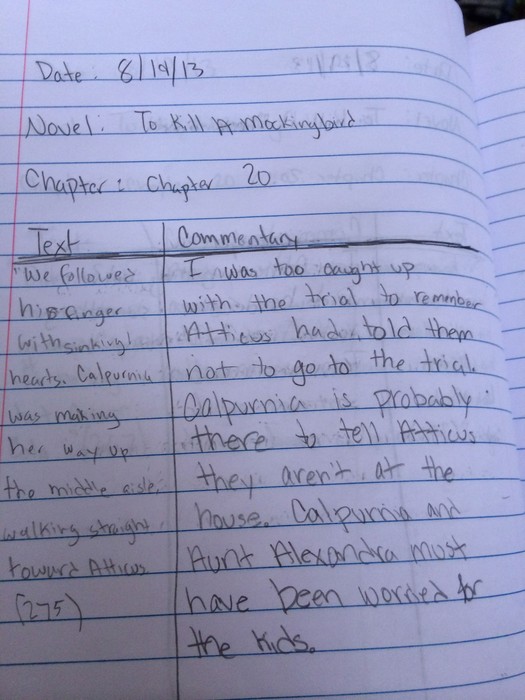 Date: 8/19/13
Novel: To Kill A Mockingbird
Chapter: Chapter 20
Text
"We followed
his finger
with sinking
hearts. Calpurnia
was making
her way up
the middle aisle,
walking straight
toward Atticus
(275)
Commentary
I was too caught up
with the trial to remember
Atticus had told them
not to go to the trial.
Calpurnia is probably
there to tell Atticus
they aren't at the
house. Calpurnia and
Aunt Alexandra must
have been worried for
the kids.